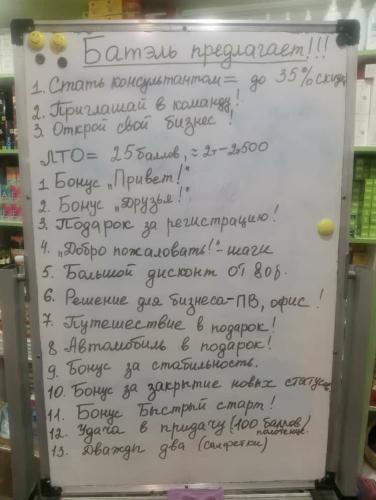 Батэль предлагает!!!
1. Стать консультантом = до 35% скидка
2. Приглашай в команду!
3. Открой свой бизнес!
ЛТО = 25 баллов, ≈ 2т-2т500
1. Бонус „Привет!“
2. Бонус „Друзья!“
3. Подарок за регистрацию!
4. „Добро пожаловать!“ - шаги
5. Большой дисконт от 80б.
6. Решение для бизнеса-ПВ, офис!
7. Путешествие в подарок!
8 Автомобиль в подарок!
9. Бонус за стабильность.
10. Бонус за закрытие новых статусов
11. Бонус Быстрый старт!
12. Удача в придачу (100 баллов) полотенце.
13. Дважды два (салфетки)